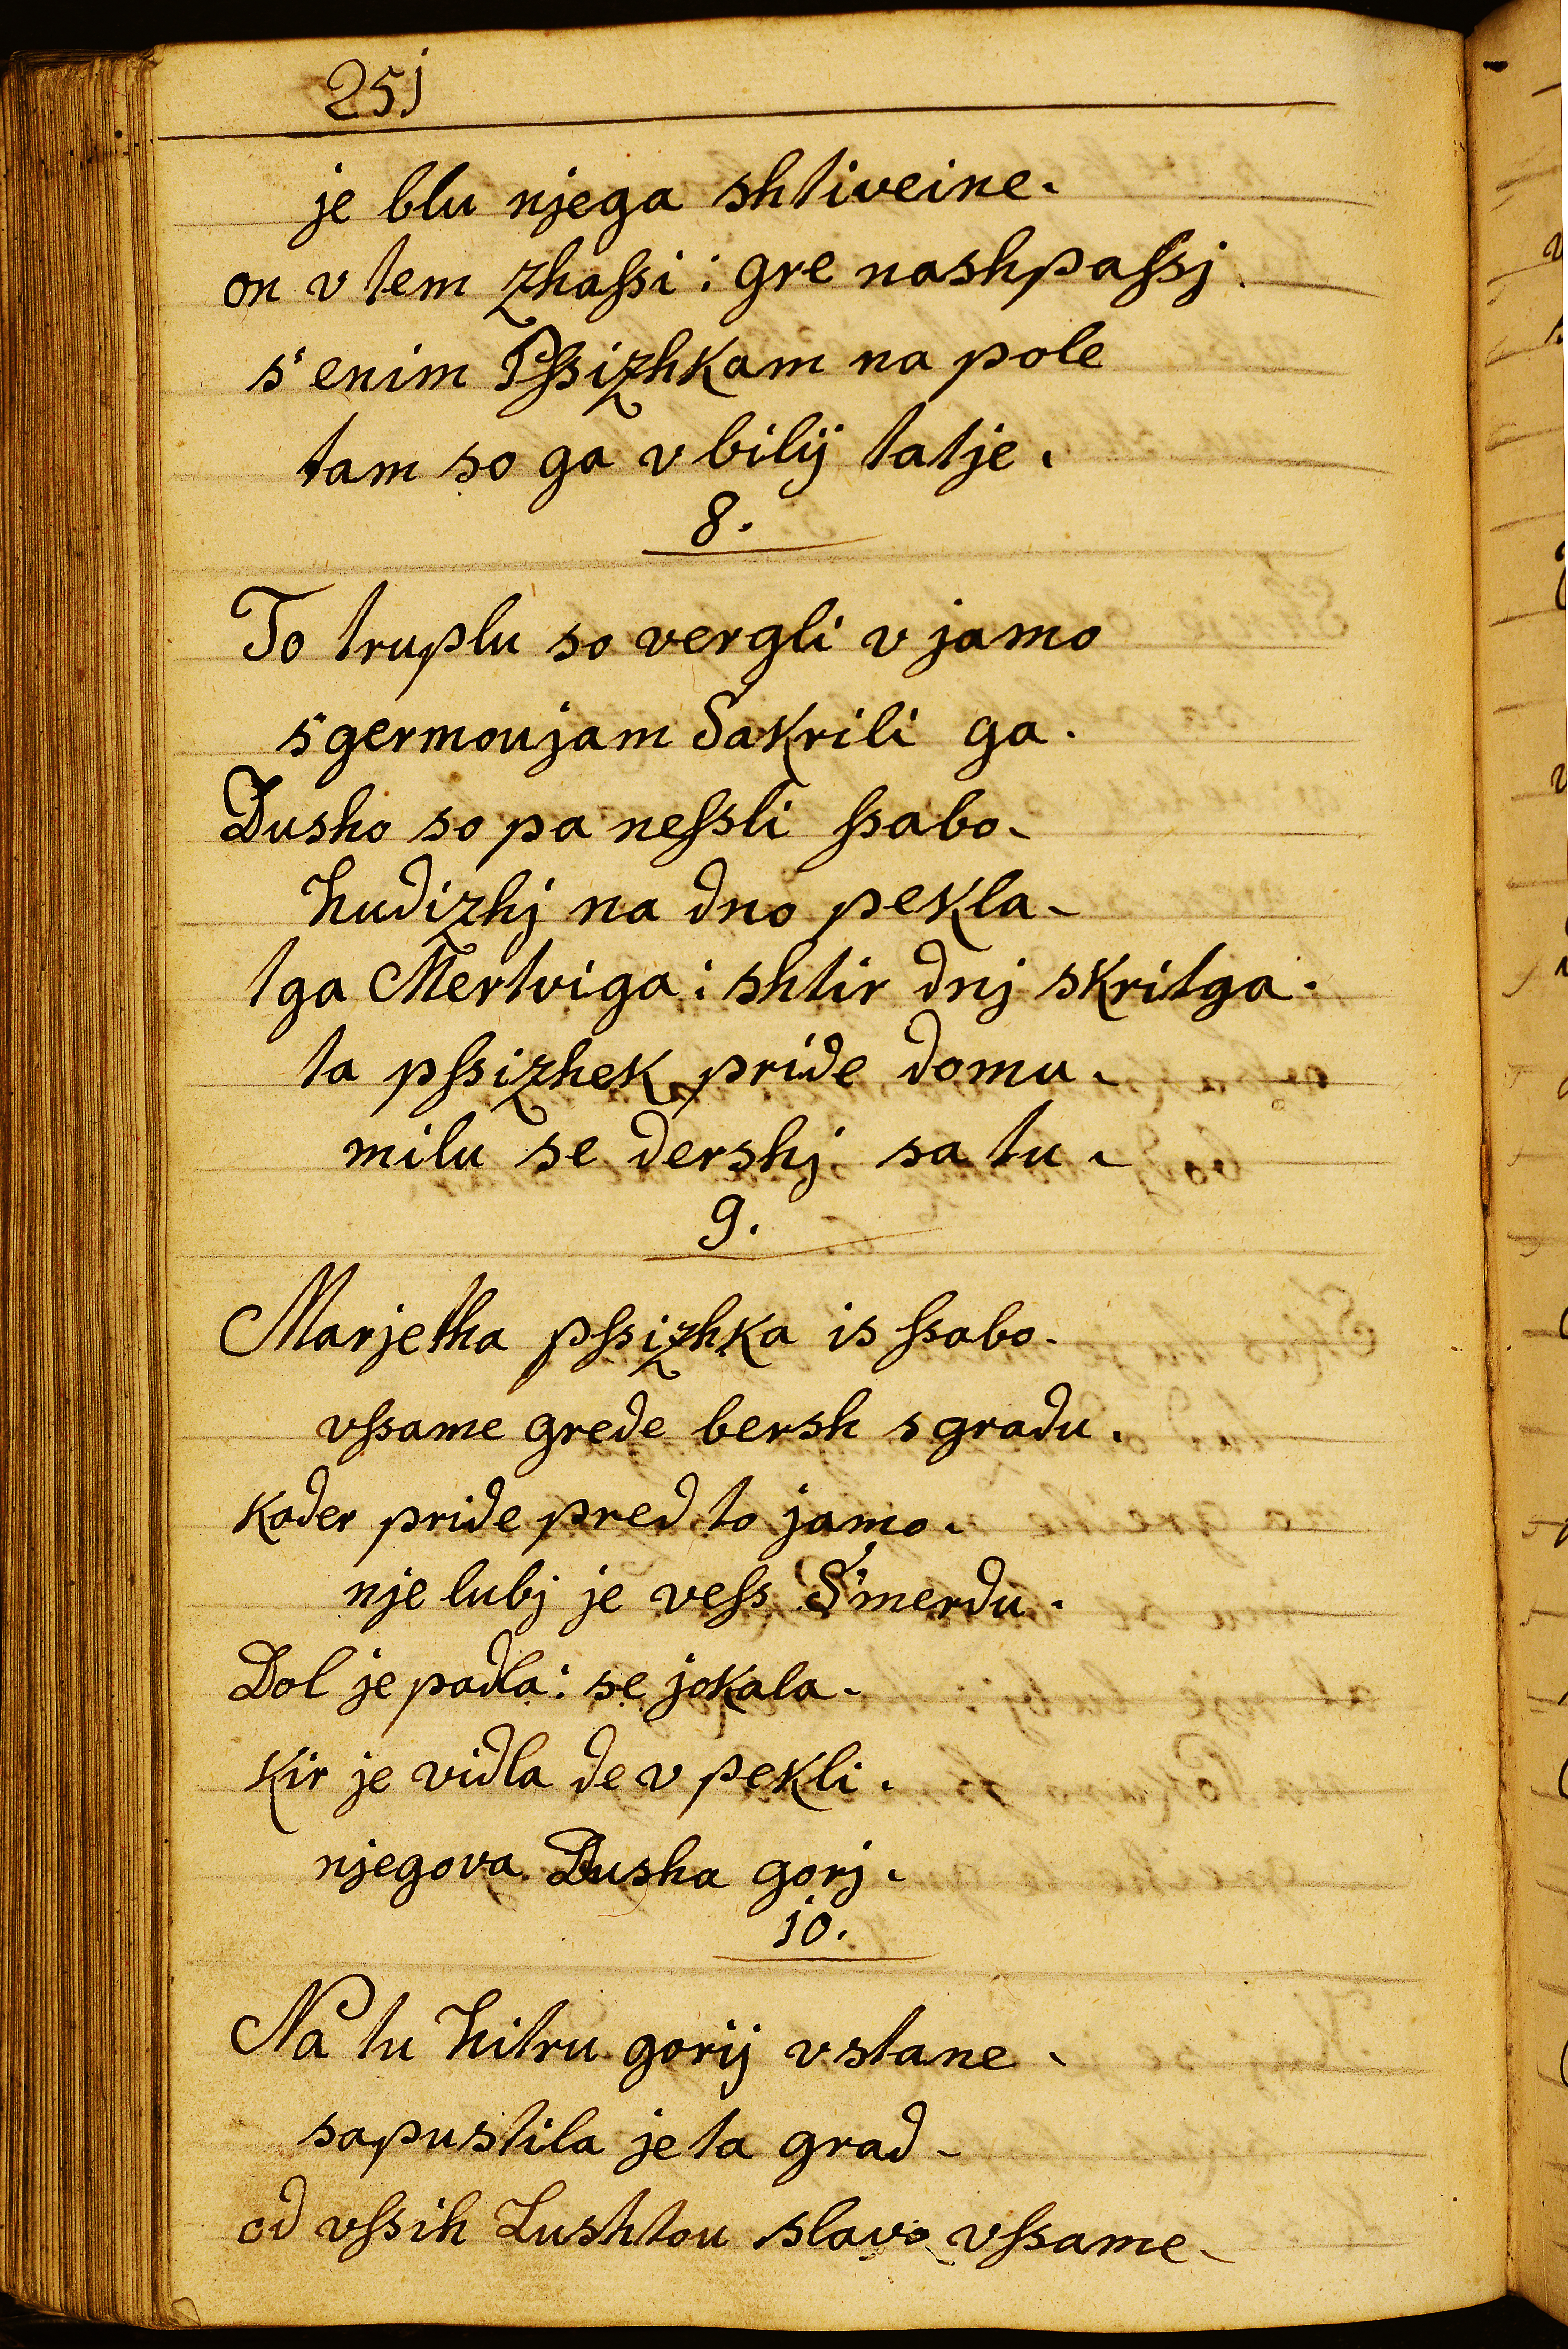 251
je blu njega shtiveine.
on v tem zhaſsi: gre nashpaſsj.
s' enim Pſsizhkam na pole
tam so ga vbilij tatje.
8.
To truplu so vergli v jamo
s'germoujam Sakrili ga.
Dusho so pa neſsli ſsabo.
hudizhj na dno pekla.
tga Mertviga: shtir dnj skritga.
ta pſsizhek pride domu.
milu se dershj sa tu.
9.
Marjetha pſsizhka is ſsabo.
vſsame grede bersh s gradu.
kader pride pred to jamo.
nje lubj je veſs S'merdu.
Dol je padla: se jokala.
kir je vidla de v pekli.
njegova Dusha gorj.
10.
Na tu hitru gorij vstane.
sapustila je ta grad.
od vſsih Lushtou slavo vſsame.